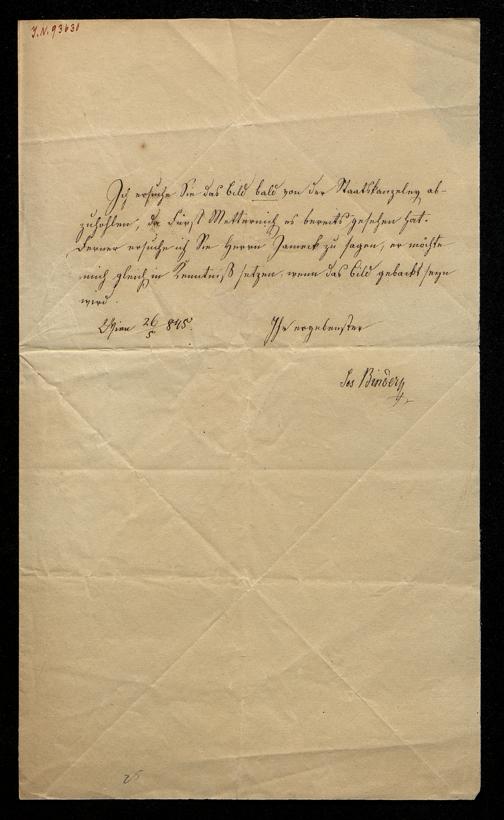 J.N. 93631
Ich ersuche Sie das Bild bald von der Staatskanzeley ab-
zuhohlen, da Fürst Metternich es bereits gesehen hat.
Ferner ersuche ich Sie Herrn zu sagen, er möchte
mich gleich in Kenntniß setzen, wenn das Bild gepackt seyn
wird.
Wien 26/5 845. Ihr ergebenster
Jos Binder
25